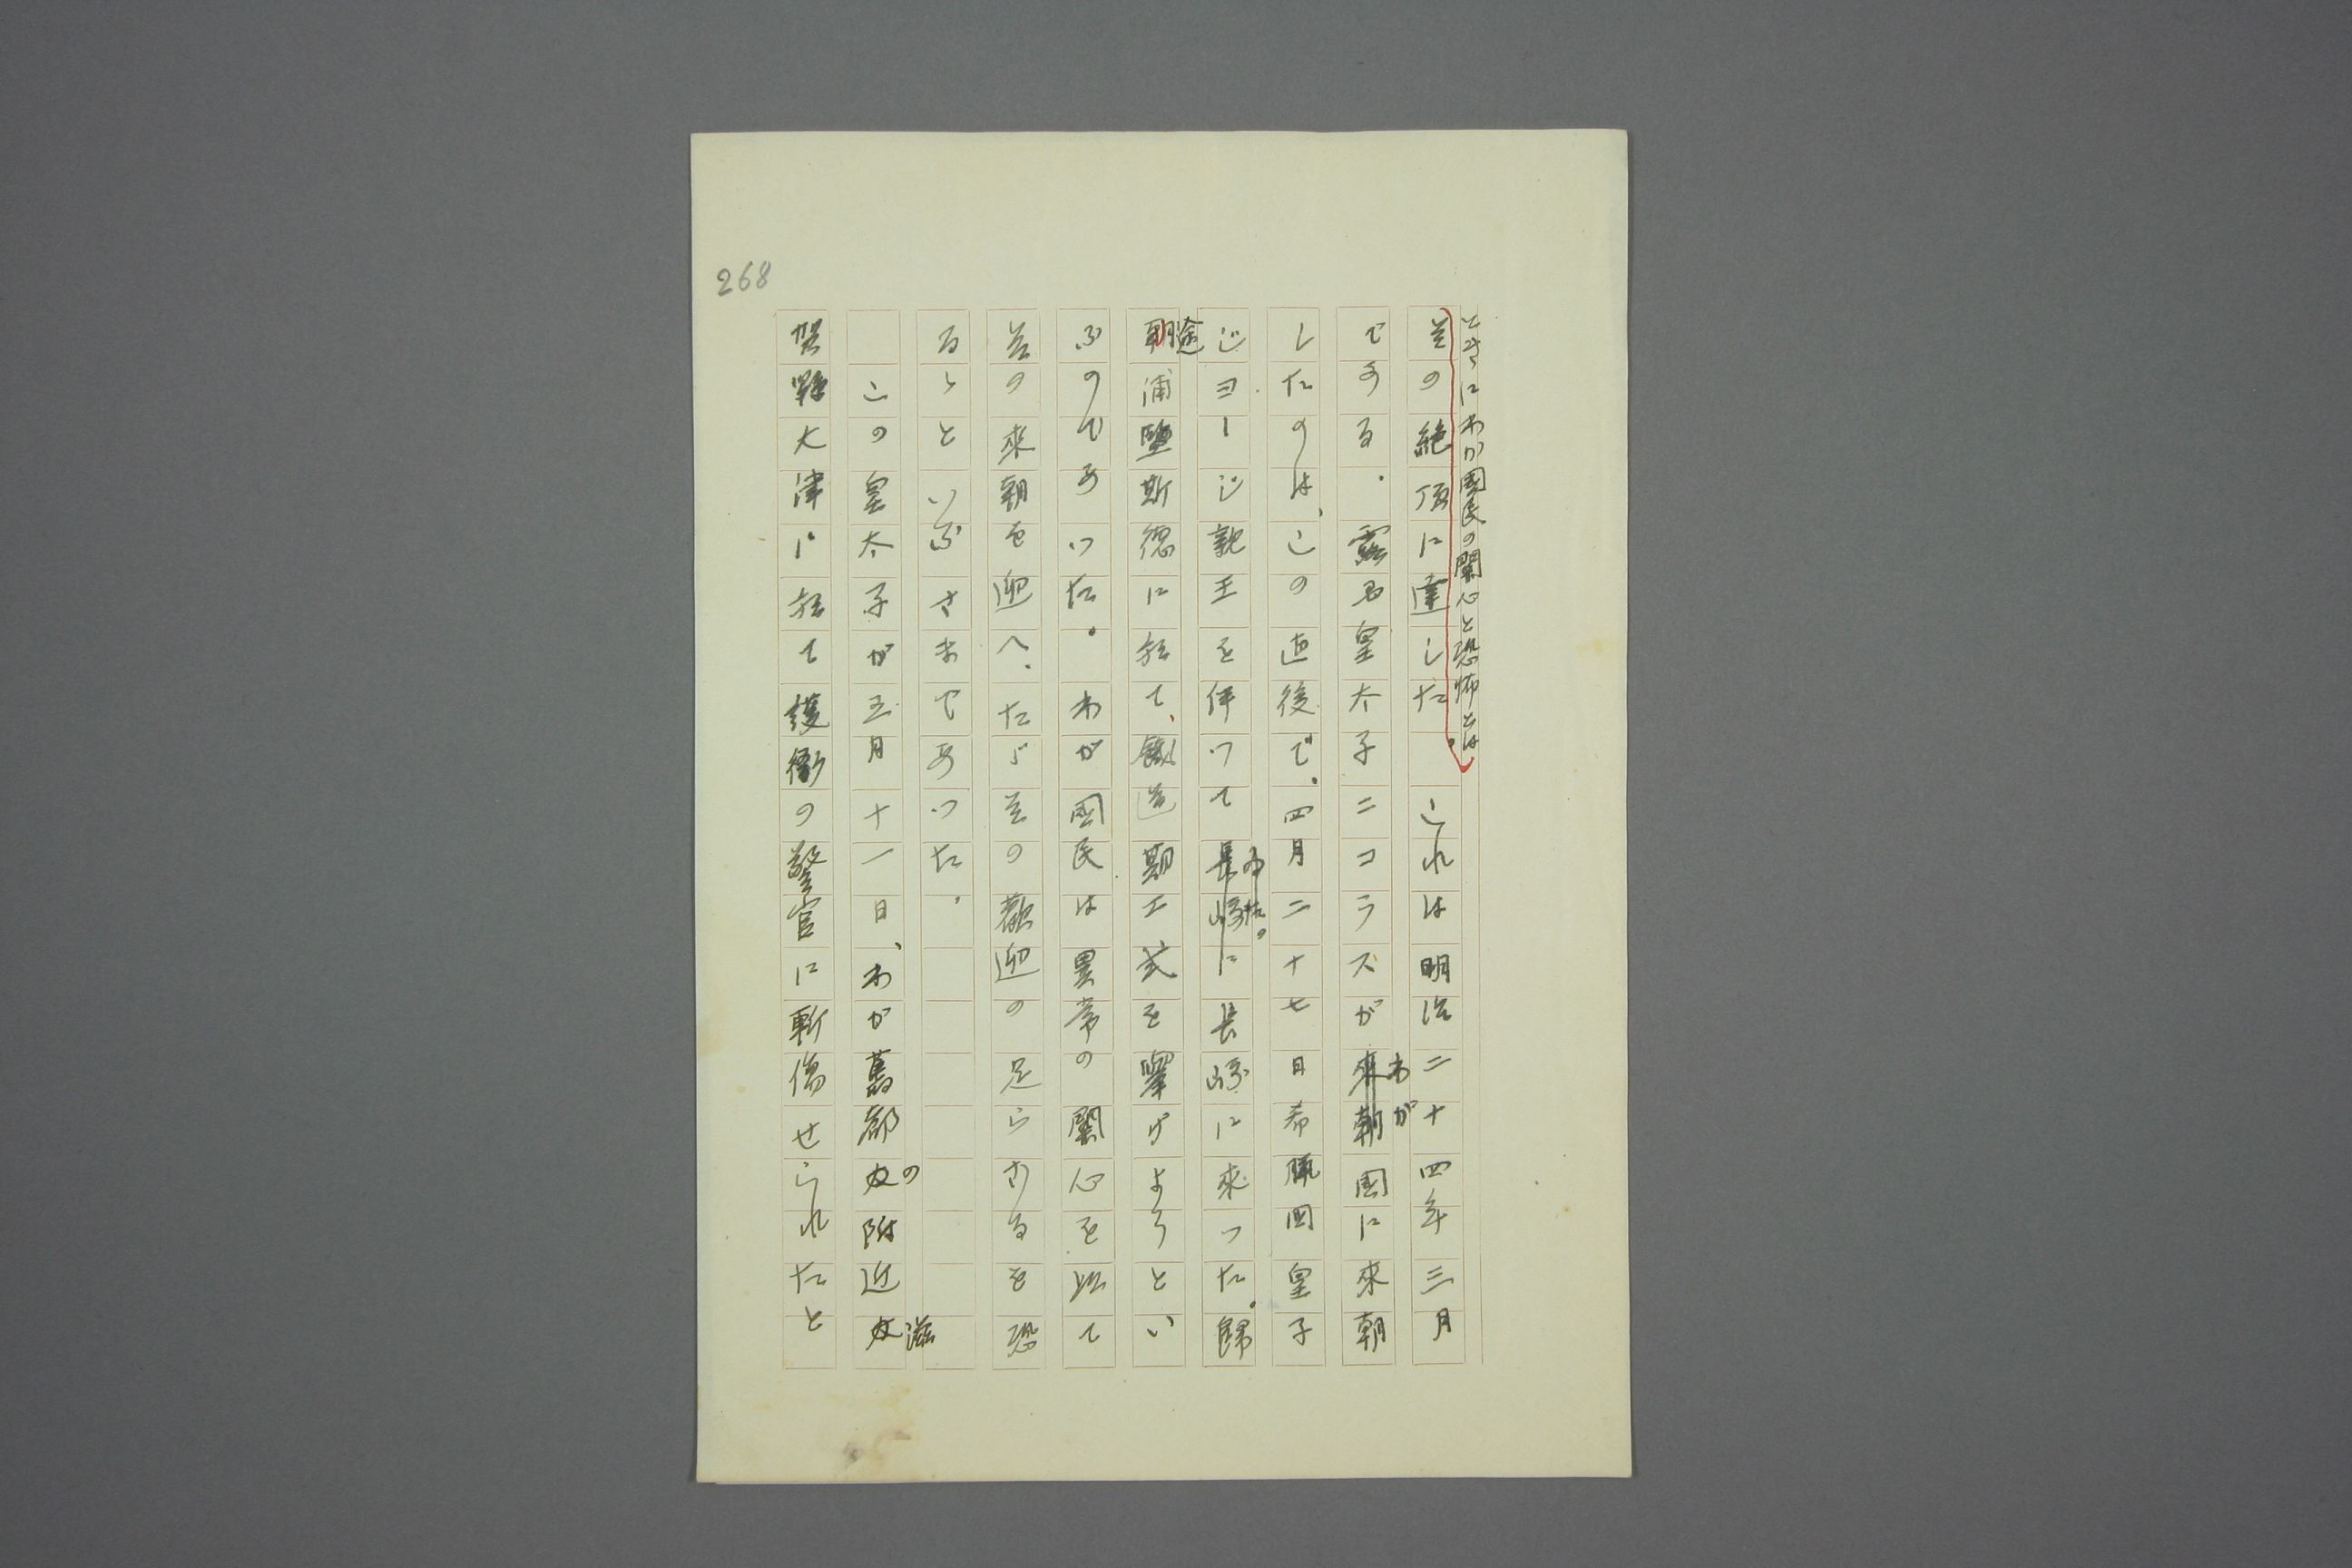 268
ときにわが國民の關心と恐怖とは
其の絶頂に達した。これは明治二十四年三月
である。露國皇太子ニコラスがわが國に來朝
したのは、この直後で、四月二十七日希臘國皇子
ジョージ親王を伴つて長崎に來つた。歸
途浦塩斯徳に於て、鐵道起工式を擧げようとい
ふのであつた。わが國民は異常の關心を以て
其の來朝を迎へ、たゞ其の歡迎の足らざるを恐
るゝといふさまであつた。
この皇太子が五月十一日、わが舊都の附近滋
賀縣大津に於て護衞の警官に斬傷せられたと